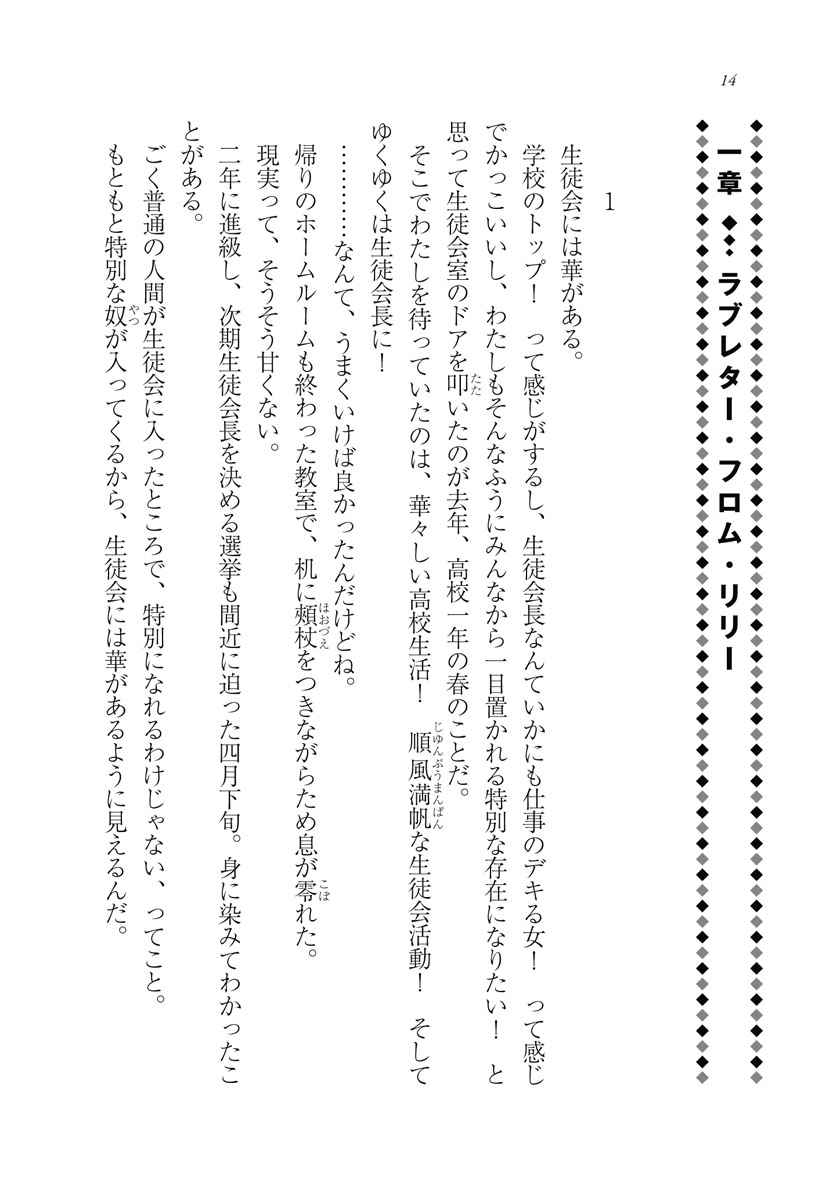 14
一章 ◆◆◆ ラブレター・フロム・リリー
1
生徒会には華がある。
学校のトップ！　って感じがするし、生徒会長なんていかにも仕事のデキる女！　って感じ
でかっこいいし、わたしもそんなふうにみんなから一目置かれる特別な存在になりたい！　と
思って生徒会室のドアを叩いたのが去年、高校一年の春のことだ。
そこでわたしを待っていたのは、華々しい高校生活！　順風満帆な生徒会活動！　そして
ゆくゆくは生徒会長に！
…………なんて、うまくいけば良かったんだけどね。
帰りのホームルームも終わった教室で、机に頬杖をつきながらため息が零れた。
現実って、そうそう甘くない。
二年に進級し、次期生徒会長を決める選挙も間近に迫った四月下旬。身に染みてわかったこ
とがある。
ごく普通の人間が生徒会に入ったところで、特別になれるわけじゃない、ってこと。
もともと特別な奴が入ってくるから、生徒会には華があるように見えるんだ。